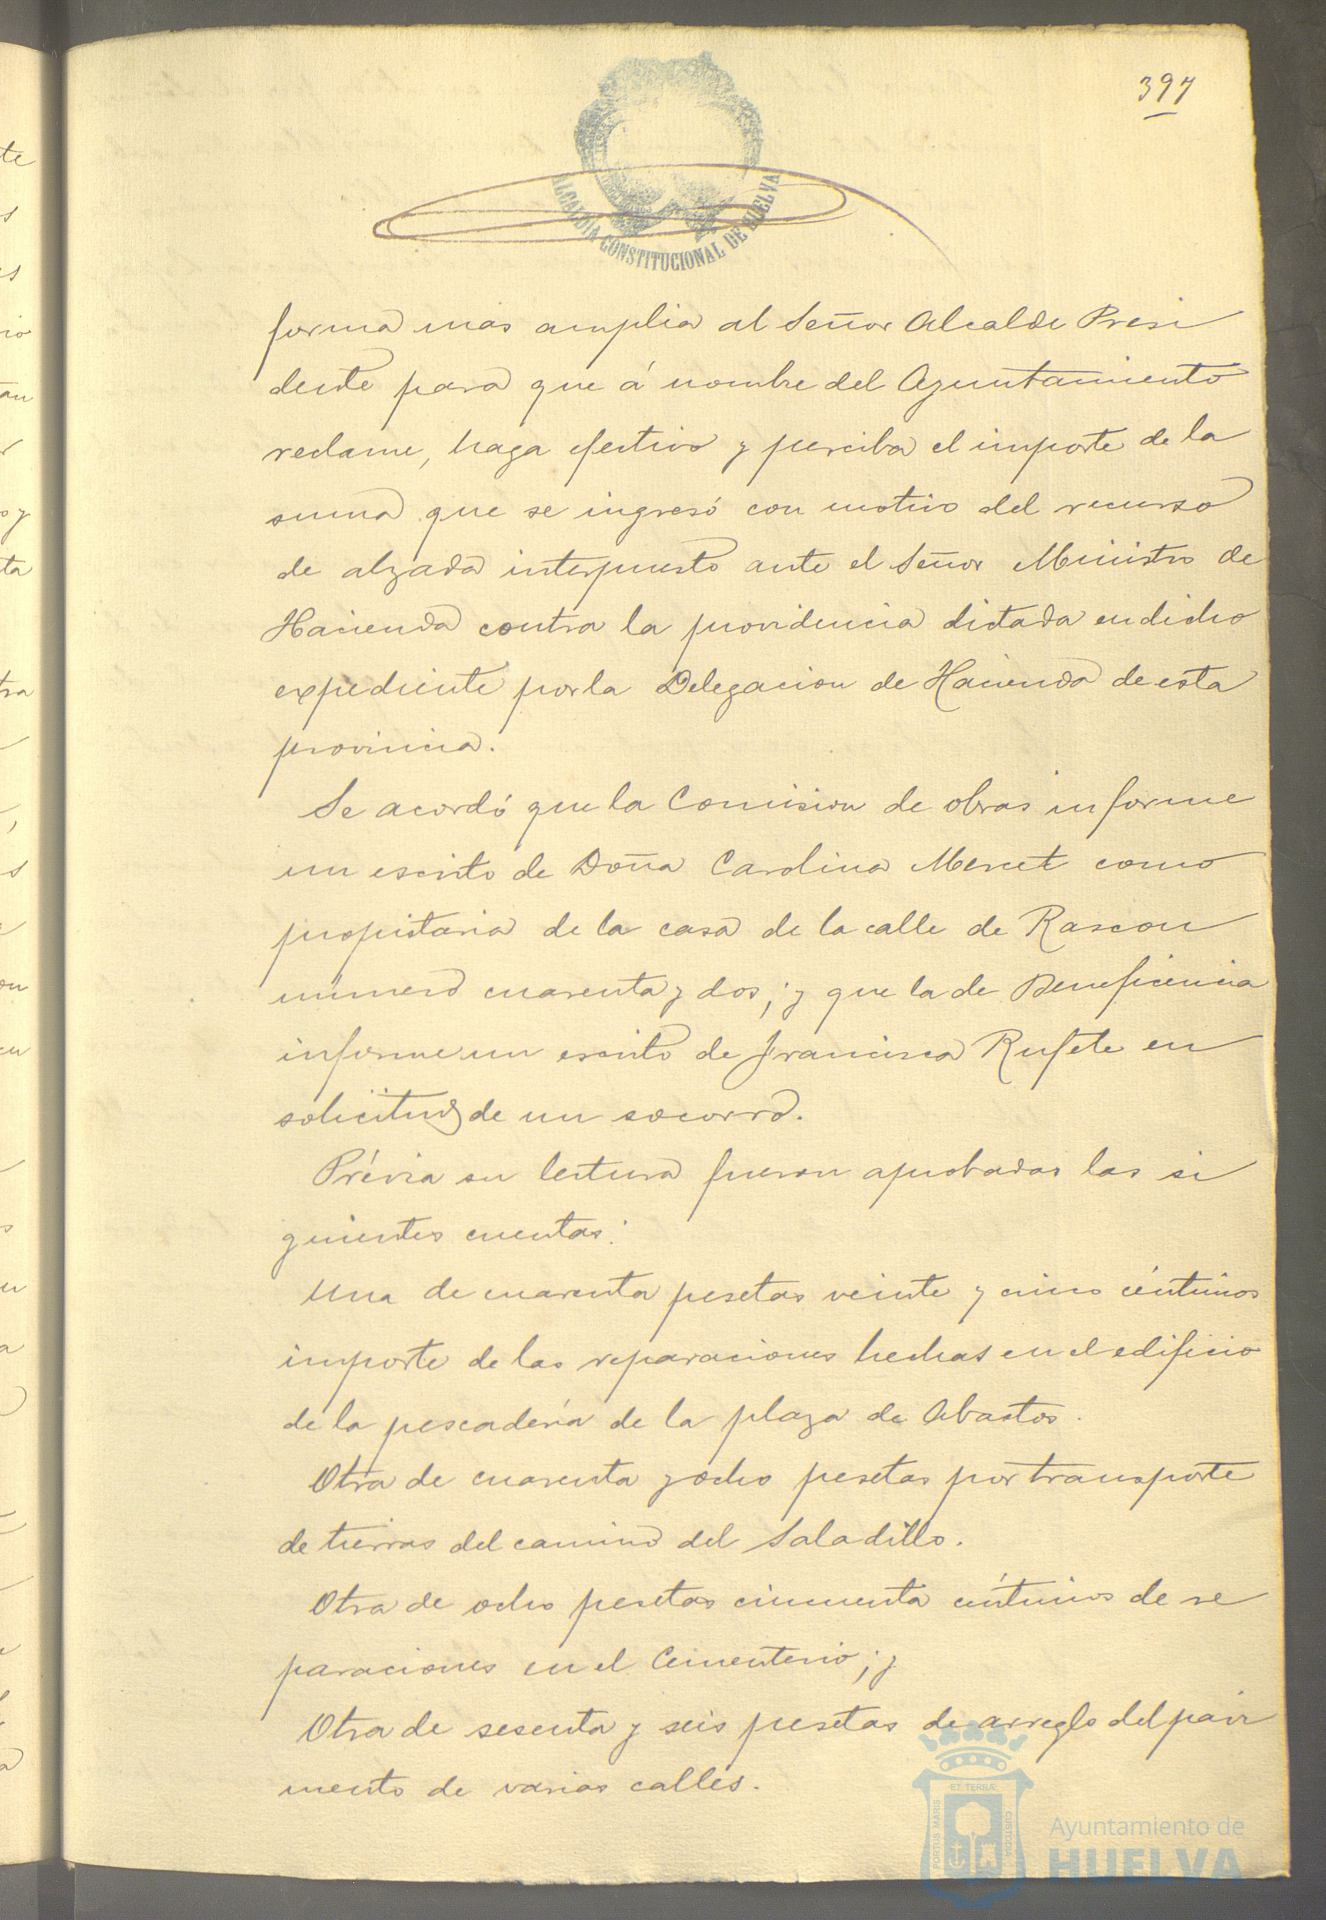 397
ALCALDÍA CONSTITUCIONAL DE HUELVA
forma mas amplia al Señor Alcalde Presi
dente para que á nombre del Ayuntamiento
reclame, haga efectivo y perciba el importe de la
suma que se ingresó con motivo del recurso
de alzada interpuesto ante el Señor Ministro de
Hacienda contra la providencia dictada en dicho
expediente por la Delegacion de Hacienda de esta
provincia.
Se acordó que la Comision de obras informe
un escrito de Doña Carolina Mercet como
propietaria de la casa de la calle de Rascon
número cuarenta y dos; y que la de Beneficencia
informe un escrito de Francisca Rufete en
solicitud de un socorro.
Prévia su lectura fueron aprobadas las si
guientes cuentas:
Una de cuarenta pesetas veinte y cinco céntimos
importe de las reparaciones hechas en el edificio
de la pescadería de la plaza de Abastos.
Otra de cuarenta y ocho pesetas por transporte
de tierras del camino del Saladillo.
Otra de ocho pesetas cincuenta céntimos de re
paraciones en el Cementerio; y
Otra de sesenta y seis pesetas de arreglo del pavi
mento de varias calles.
ET TERRÆ
PORTUS MARIS
CUSTODIA
Ayuntamiento de
HUELVA